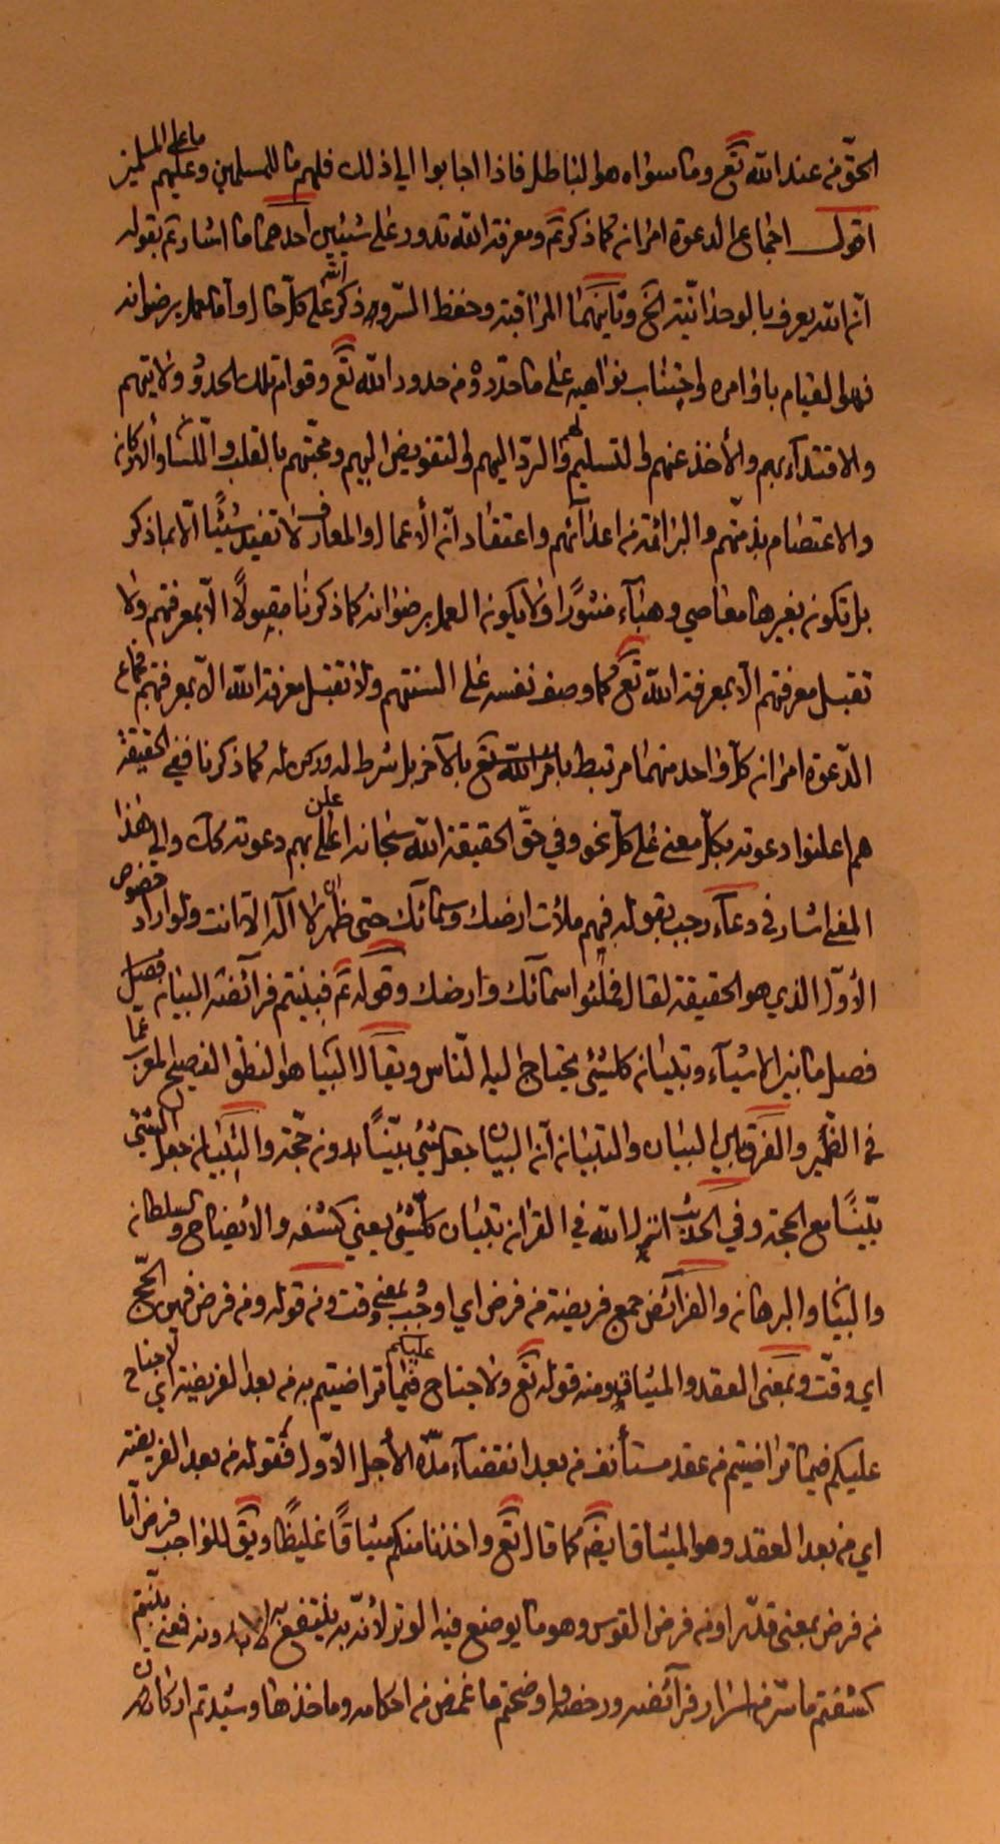 الحقّ من عند الله تع وما سواه هو الباطل فاذا اجابوا الى ذلك فلهم ما للمسلمين وعليهم ما على المسلمين
اقول اجماع الدعوة امران كما ذكرتم ومعرفة الله تدور على شيئين احدهما ما اشار تم بقوله
انّ الله يعرف بالوحدانيّة الخ وثانيهما المراقبة وحفظ السّر وذكر الله على كلّ حال وامّا العمل برضوانه
فهو القيام باوامره واجتناب نواهيه على ما حدّدوه من حدود الله تع وقوام تلك الحدود ولايتهم
والاقتداء بهم والأخذ عنهم والتسليم لهم والردّ اليهم والتفويض اليهم ومحبّتهم بالقلب واللّسان والاركان
والاعتصام بذمّتهم والبرائة من اعدائهم واعتقاد انّ الأعمال والمعارف لا تفيد شيئًا الّا بما ذكر
بل تكون بغيرها معاصي وهباء منثورًا ولا يكون العمل برضوانه كما ذكرنا مقبولًا الّا بمعرفتهم ولا
تقبل معرفتهم الّا بمعرفة الله تع كما وصف نفسه على السنتهم ولا تقبل معرفة الله الّا بمعرفتهم فجماع
الدّعوة امران كلّ واحد منهما مرتبط بامر الله تع بالآخر بل شرط له وركن له كما ذكرنا ففي الحقيقة
هم اعلنوا دعوته بكلّ معنى على كلّ نحو وفي حقّ الحقيقة الله سبحانه اعلن بهم دعوته كك والى هذا
المعنى اشار في دعاء رجب بقوله فبهم ملأت ارضك وسمائك حتى ظهر ان لا اله الّا انت ولو اراد خصوص
الأوّل الذي هو الحقيقة لقال فملئوا سمائك وارضك وقوله تم فبيّنتم فرائضه البيان فصل
فصل ما بين الاشياء وتبيان كلشئ يحتاج اليه النّاس ويقال البيان هو النطق الفصيح المعرب عمّا
في الضّمير والفرق بين البيان والتبيان انّ البيان جعل الشئ بيّنًا بدون حجّة والتّبيان جعل الشئ
بيّنًا مع الحجة وفي الحديث انزل الله في القران تبيان كلّشئ يعني كشفه والايضاح والسلطان
والبيان والبرهان والفرائض جمع فريضة من فرض اي اوجب وبمعنى وقت ومنه قوله ومن فرض فيهن الحجّ
اي وقّت وبمعنى العقد والميثاق ومنه قوله تع ولا جناح عليكم فيما تراضيتم به من بعد الفريضة اي لا جناح
عليكم فيما تراضيتم من عقد مستأنف من بعد انقضاء مدّة الأجل الاوّل فقوله من بعد الفريضة
اي من بعد العقد وهو الميثاق ايضم كما قال تع واخذنا منكم ميثاقًا غليظًا ويق للواجب فرض امّا
من فرض بمعنى قدّر او من فرض القوس وهو ما يوضع فيه الوتر لأنّه به ينتفع لا بدونه فمعنى بيّنتم
كشفتم ما ستر من اسرار فرائضه ورخصه واوضحتم ما غمض من احكامه وماخذها وشيّدتم اركان